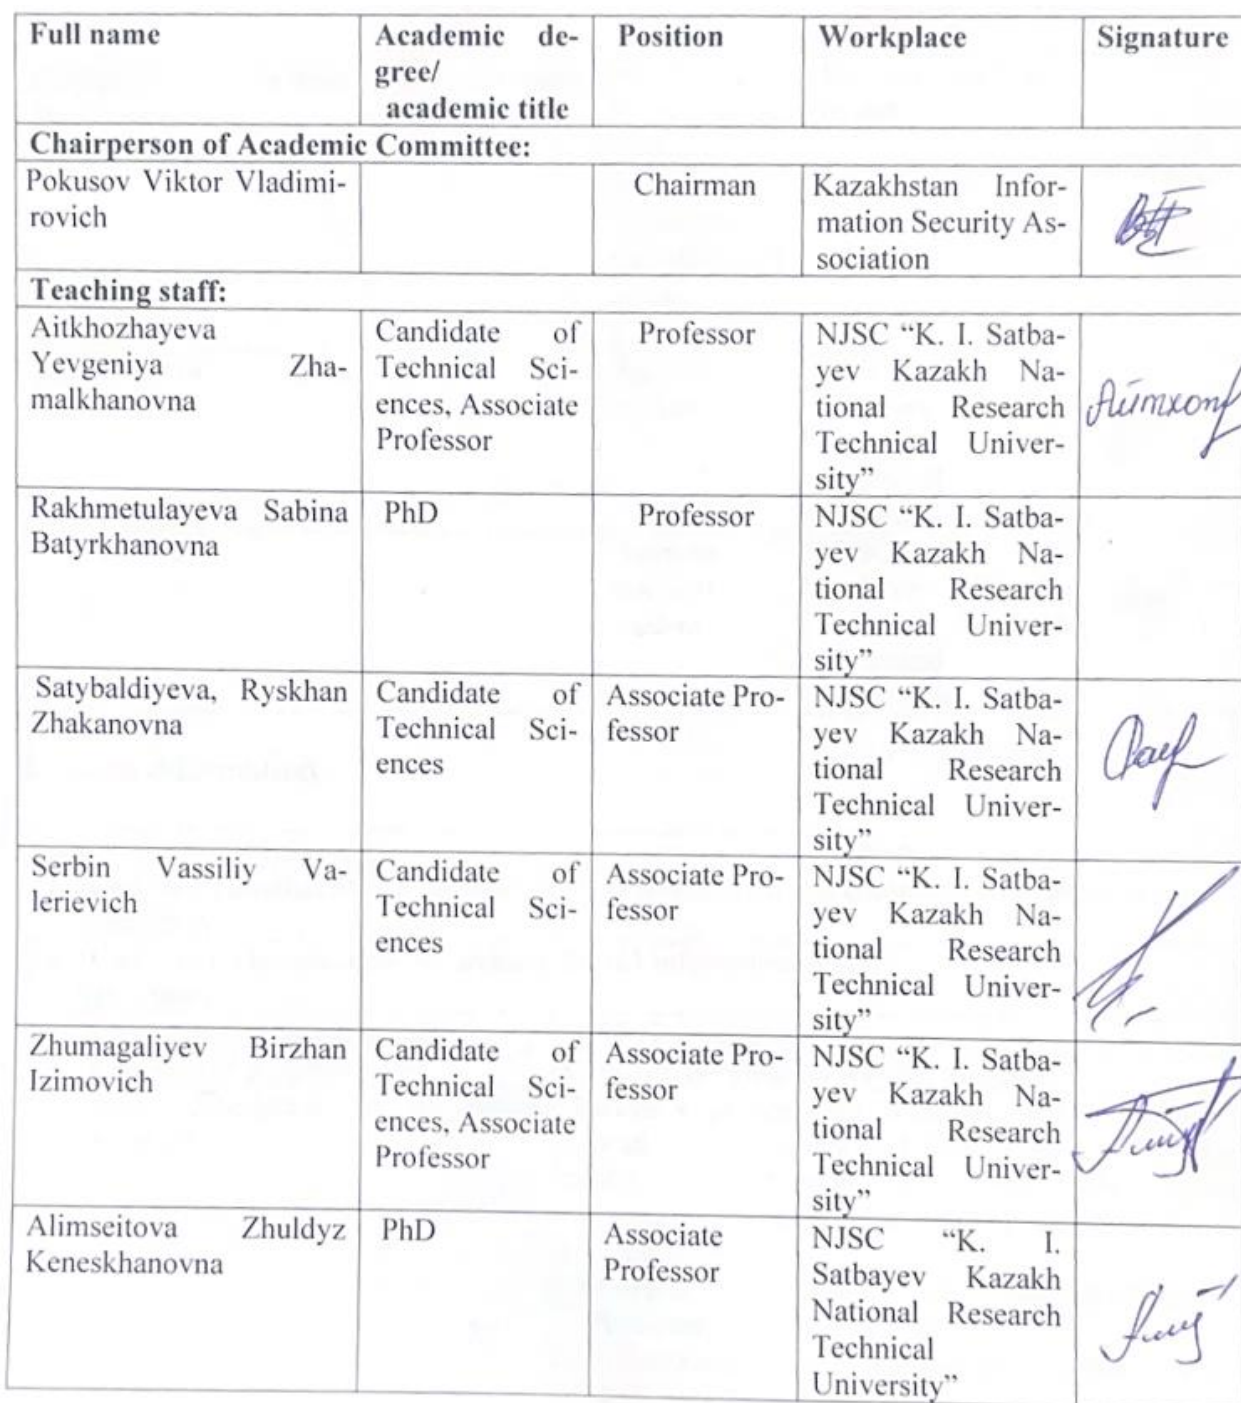 Full name
Academic de-
gree/
academic title
Position
Workplace
Signature
Chairperson of Academic Committee:
Pokusov Viktor Vladimi-
rovich
Chairman
Kazakhstan Infor-
mation Security As-
sociation
Teaching staff:
Aitkhozhayeva
Yevgeniya Zha-
malkhanovna
Candidate of
Technical Sci-
ences, Associate
Professor
Professor
NJSC “K. I. Satba-
yev Kazakh Na-
tional Research
Technical Univer-
sity”
Rakhmetulayeva Sabina
Batyrkhanovna
PhD
Professor
NJSC “K. I. Satba-
yev Kazakh Na-
tional Research
Technical Univer-
sity”
Satybaldiyeva, Ryskhan
Zhakanovna
Candidate of
Technical Sci-
ences
Associate Pro-
fessor
NJSC “K. I. Satba-
yev Kazakh Na-
tional Research
Technical Univer-
sity”
Serbin Vassiliy Va-
lerievich
Candidate of
Technical Sci-
ences
Associate Pro-
fessor
NJSC “K. I. Satba-
yev Kazakh Na-
tional Research
Technical Univer-
sity”
Zhumagaliyev Birzhan
Izimovich
Candidate of
Technical Sci-
ences, Associate
Professor
Associate Pro-
fessor
NJSC “K. I. Satba-
yev Kazakh Na-
tional Research
Technical Univer-
sity”
Alimseitova Zhuldyz
Keneskhanovna
PhD
Associate
Professor
NJSC “K. I.
Satbayev Kazakh
National Research
Technical
University”